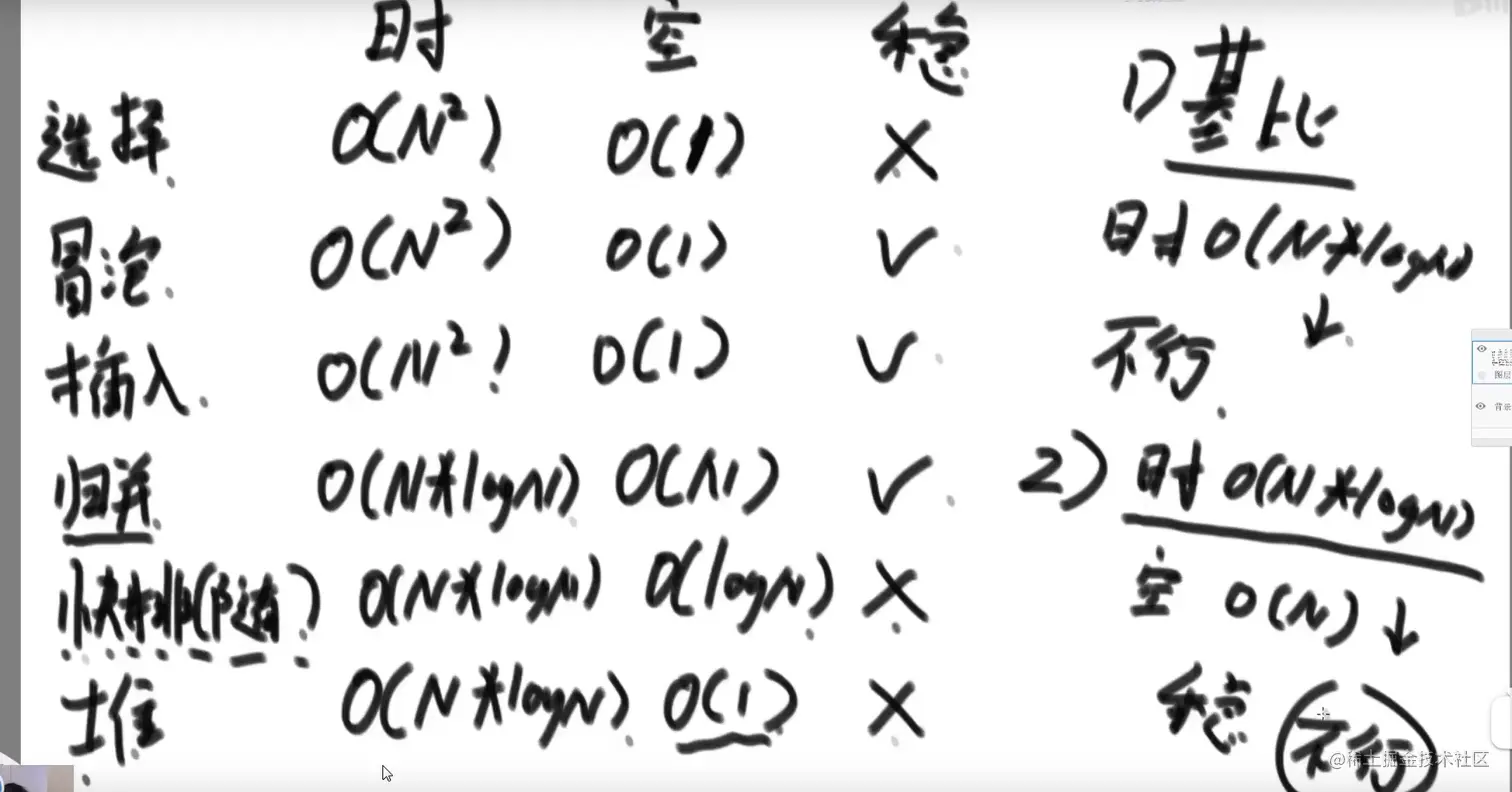 时 空 稳
选择 O(N²) O(1) ×
冒泡 O(N²) O(1) √
插入 O(N²) O(1) √
归并 O(N*logN) O(N) √
快排(随) O(N*logN) O(logN) ×
堆 O(N*logN) O(1) ×
1) 基比
时 O(N*logN) ↓
不行
2) 时 O(N*logN)
空 O(N) ↓
稳 不行
图层
背景
@稀土掘金技术社区